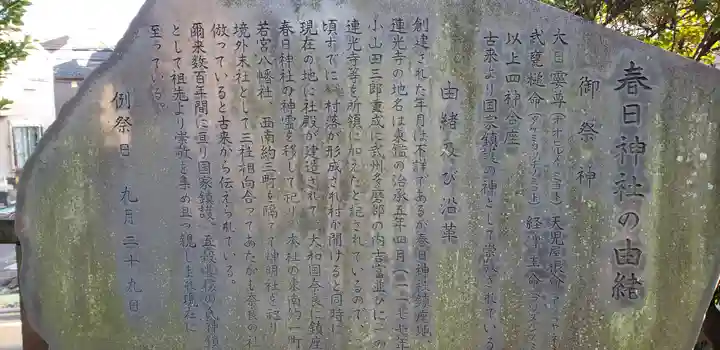 春日神社の由緒
御祭神
大日孁尊(オオヒルメノミコト) 天児屋根命
武甕槌命(タケミカヅチノミコト) 経津主命
以上四神合座
古来より国家鎮護の神として崇敬されている
由緒及び沿革
創建された年月は不詳であるが春日神社鎮座地、
蓮光寺の地名は東鑑の治承五年四月(一一八一年
小山田三郎重成に武州多磨郡の内吉富並びに一の
蓮光寺等を所領に加えたと記されているので、
頃すでに村落が形成され村が開けると同時に
現在の地に社殿が建造されて大和国奈良に鎮座
春日神社の神霊を移して祀り、本社の東南約一町
若宮八幡社、西南約三町を隔てて神明社を祀り
境外末社として三社相向合ってあたかも奈良の社
倣っていると古来から伝えられている。
爾来数百年間に亘り国家鎮護、五穀豊穣の氏神鎮
として祖先より崇敬を集め且つ親しまれ現在に
至っている。
例祭日 九月二十九日